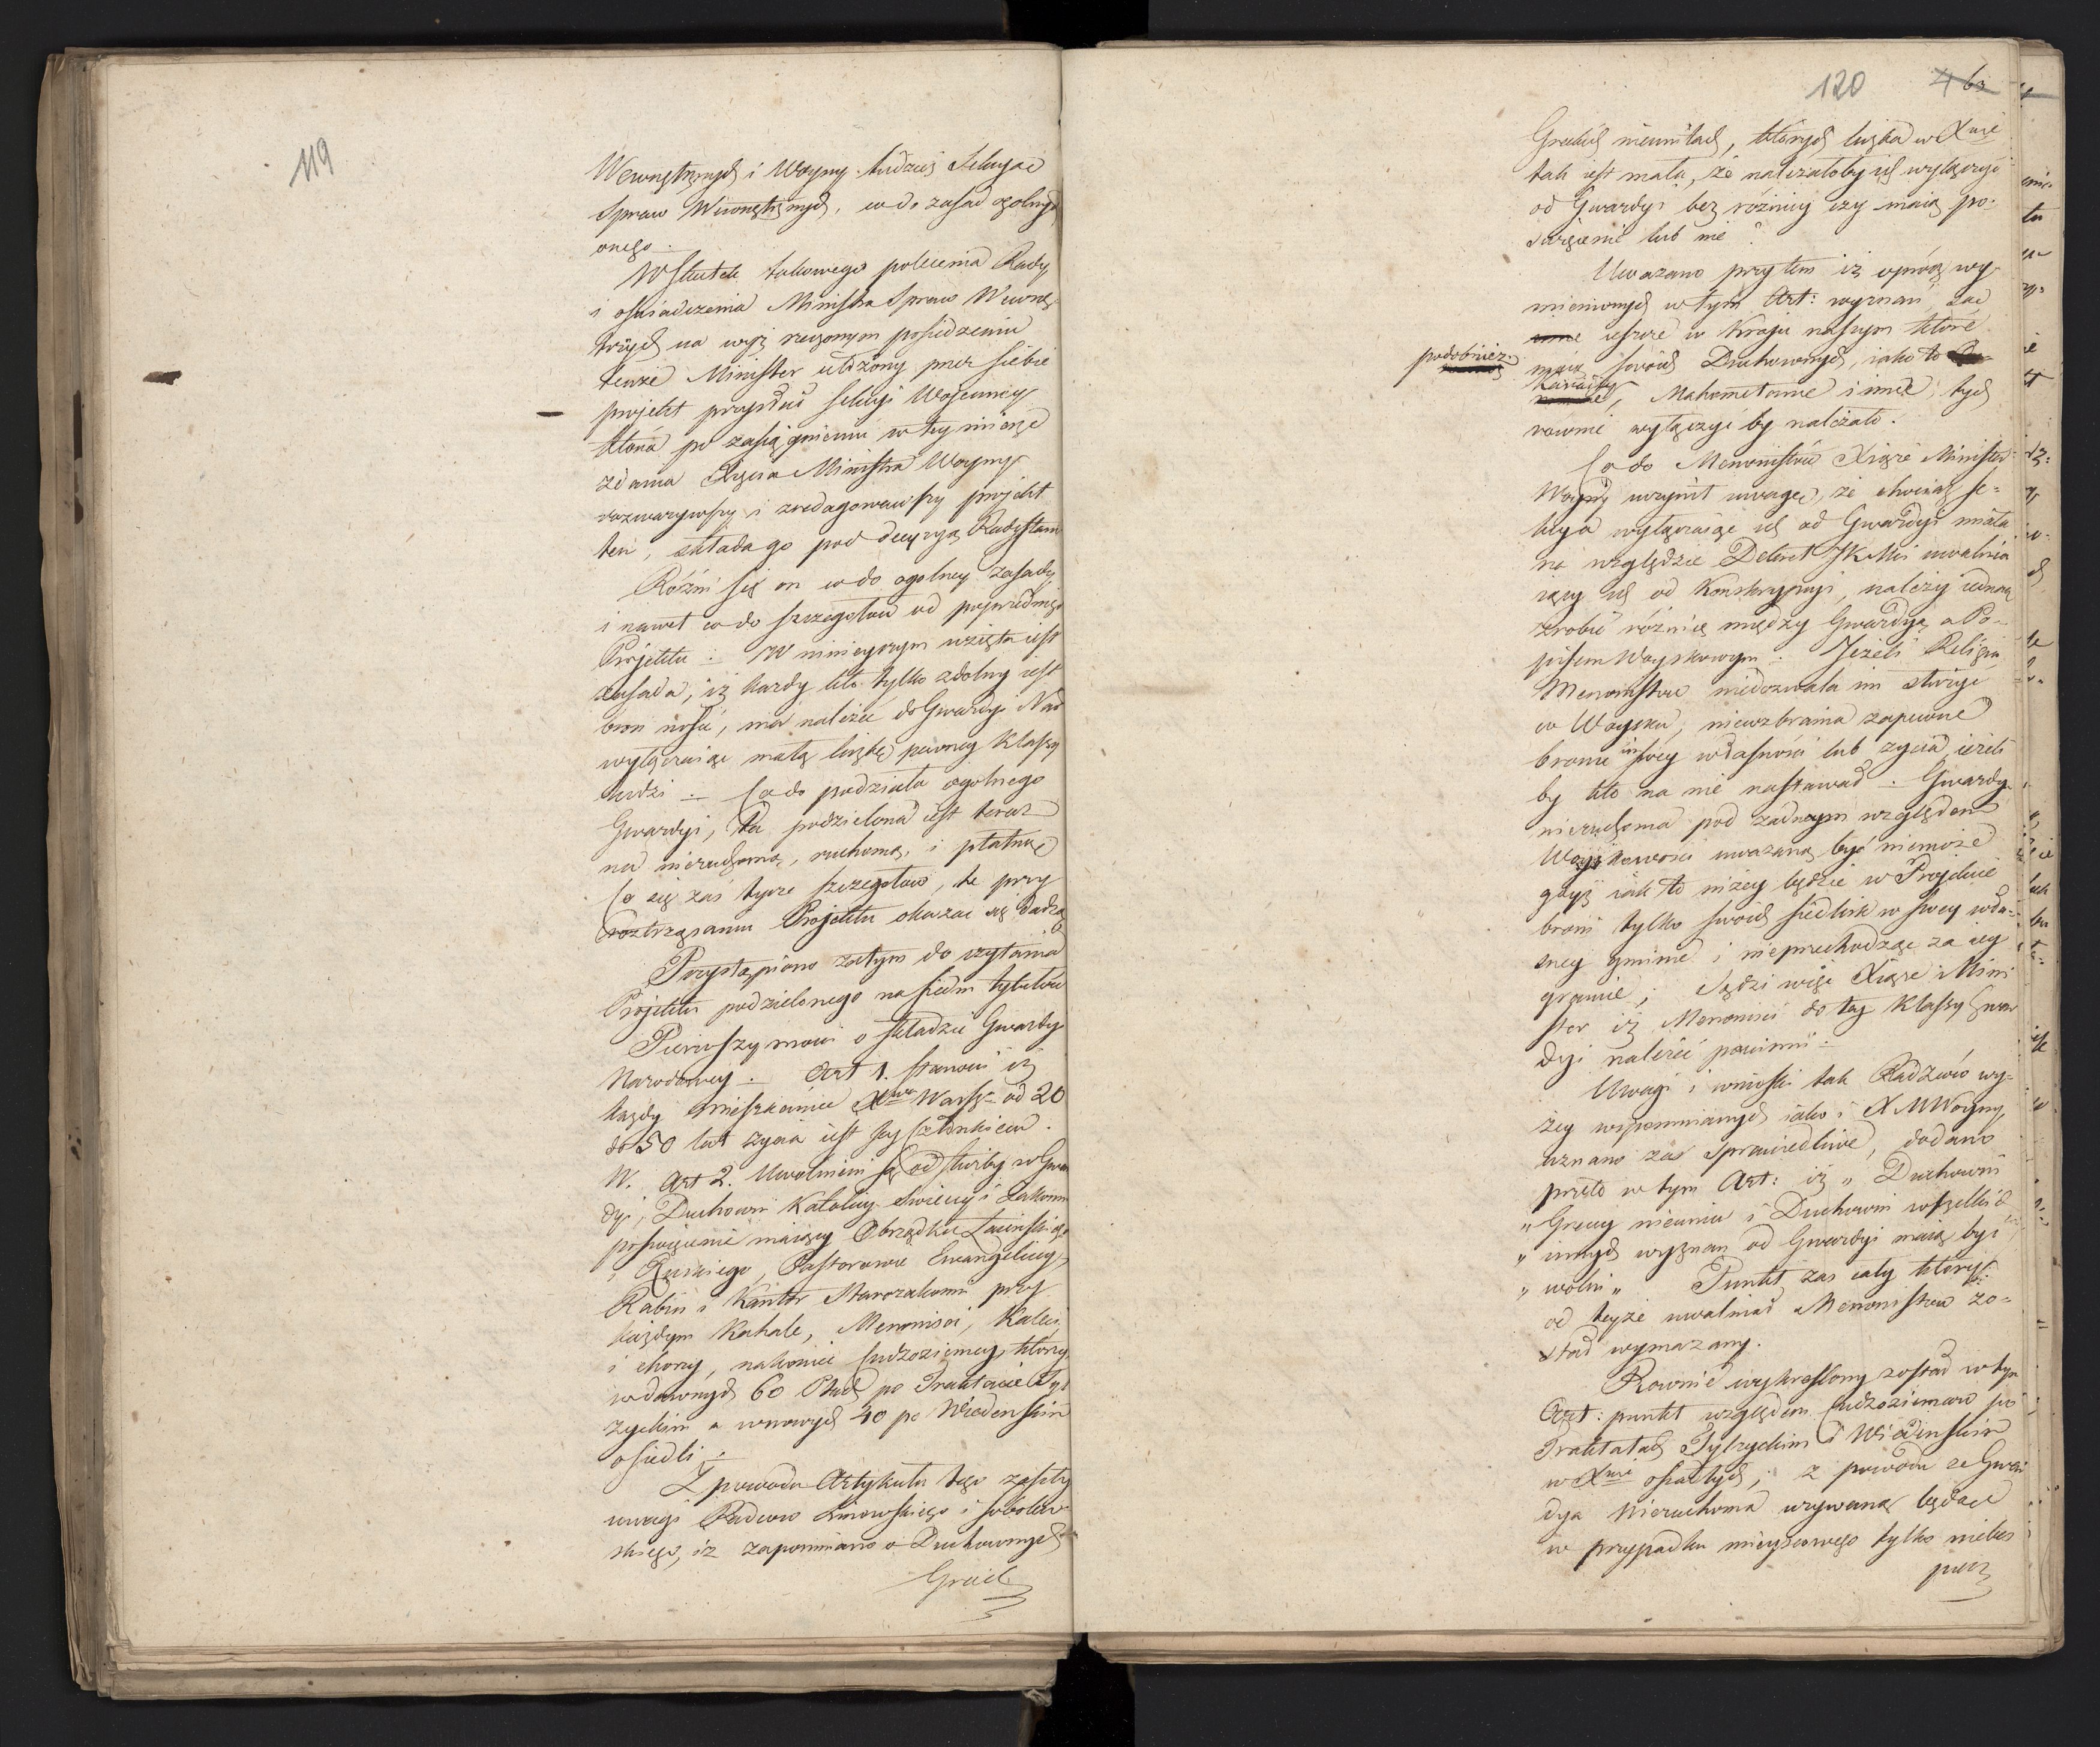 119
Wewnętrznych i Woyny tudzież Sekcyie
Spraw Wewnętrznych, co do zasad ogolnych
onego.
W skutek takowego polecenia Rady
i oświadczenia Ministra Spraw Wewnę-
trznych na wyż rzeczonym posiedzeniu
tenże Minister ułożony przez siebie
projekt przysłał Sekcyi Woienney
która po zasiągnieniu w tey mierze
zdania Xięcia Ministra Woyny
rozważywszy i zredagowawszy projekt
ten, składa go pod decyzyą Rady Stanu
Różni się on co do ogolney zasady
i nawet co do szczegołów od poprzedniego
Projektu. W ninieyszym wzięta iest
zasada, iż każdy kto tylko zdolny iest
broń nosić, ma należeć do Gwardyi Nar
wyłączaiąc małą liczbę pewney klassy
ludzi. Co do podziału ogolnego
Gwardyi, ta podzielona iest teraz
na nieruchomą, ruchomą, i płatną
Co się zaś tycze szczegołów, te przy
roztrząsaniu Projektu okazać się dadzą
Przystąpiono zatym do czytania
Projektu podzielonego na siedm tytułów
Pierwszy mowi o składzie Gwardyi
Narodowey. Art 1. stanowi iż
każdy mieszkaniec Xtwa Warszo od 20
do 50 lat życia iest iey członkiem.
W. Art 2. Uwolnieni są od służby w Gwar
dyi, Duchowni Katoliccy świeccy i zakonni
poświęcenie maiący Obrządku Łacińskiego
i Ruskiego, Pastorowie Ewangeliccy,
Rabin i Kantor Starozakonni przy
każdym Kahale, Menonisci, Kaleki
i chorzy, nakoniec Cudzoziemcy, którzy
w dawnych 60 Ptach po Traktacie Tyl
życkim a w nowych 40 po Wiedenskim
osiedli.
Z powodu Artykułu tego zaszły
uwagi Radcow Linowskiego i Sobolew
skiego, iż zapomniano o Duchownych
Greck
120 463
Greckich nieunitach, których liczba w Xwie
tak iest mała, że należałoby ich wyłączyć
od Gwardyi bez rożnicy czy maią po-
święcenie lub nie?
Uważano przytem iż oprócz wy-
mienionych w tym Art: wyznań są
ieszcze w kraju naszym które
podobnież
maią swoich Duchownych, iako to
Karaici, Mahometanie i inne; tych
rownie wyłączyć by należało.
Co do Menonistów Xiąże Minister
Woyny uczynił uwagę, że chociaż Se-
kcya wyłączaiąc ich od Gwardyi miała
na względzie Dekret JKMci uwalnia
iący ich od Konskrypcyi, należy iednak
zrobić rożnicę między Gwardyą a Po-
pisem Woyskowym. Jeżeli Religia
Menonistow niedozwala im służyć
w Woysku, niewzbrania zapewne
bronić im swey własności lub życia, ieżeli
by kto na nie nastawał. Gwardya
nieruchoma pod żadnym względem
Woyskowości uważaną być niemoże
gdyż iak to niżey będzie w Projekcie
broni tylko swoich siedlisk w swey wła-
sney gminie i nieprzechodząc za iey
granice; sądzi więc Xiąże Mini
ster iż Menonisci do tey klassy Gwar
dyi należeć powinni.
Uwagi i wnioski tak Radzców wy-
żey wspomnianych iako i XMWoyny
uznano za sprawiedliwe, dodano
przeto w tym Art: iż „ Duchowni
„ Greccy nieunici i Duchowni wszelkich
„ innych wyznan od Gwardyi maią być
„ wolni „ Punkt zaś cały który
od teyże uwalniał Menonistow zo-
stał wymazany.
Rownie wykreślony został w tym
Art: punkt względem Cudzoziemców po
Traktatach Tylżyckim i Wiedeńskim
w Xwie osiadłych; z powodu że Gwar
dya Nieruchoma wzywaną będąc
w przypadku mieyscowego tylko niebes
piecz